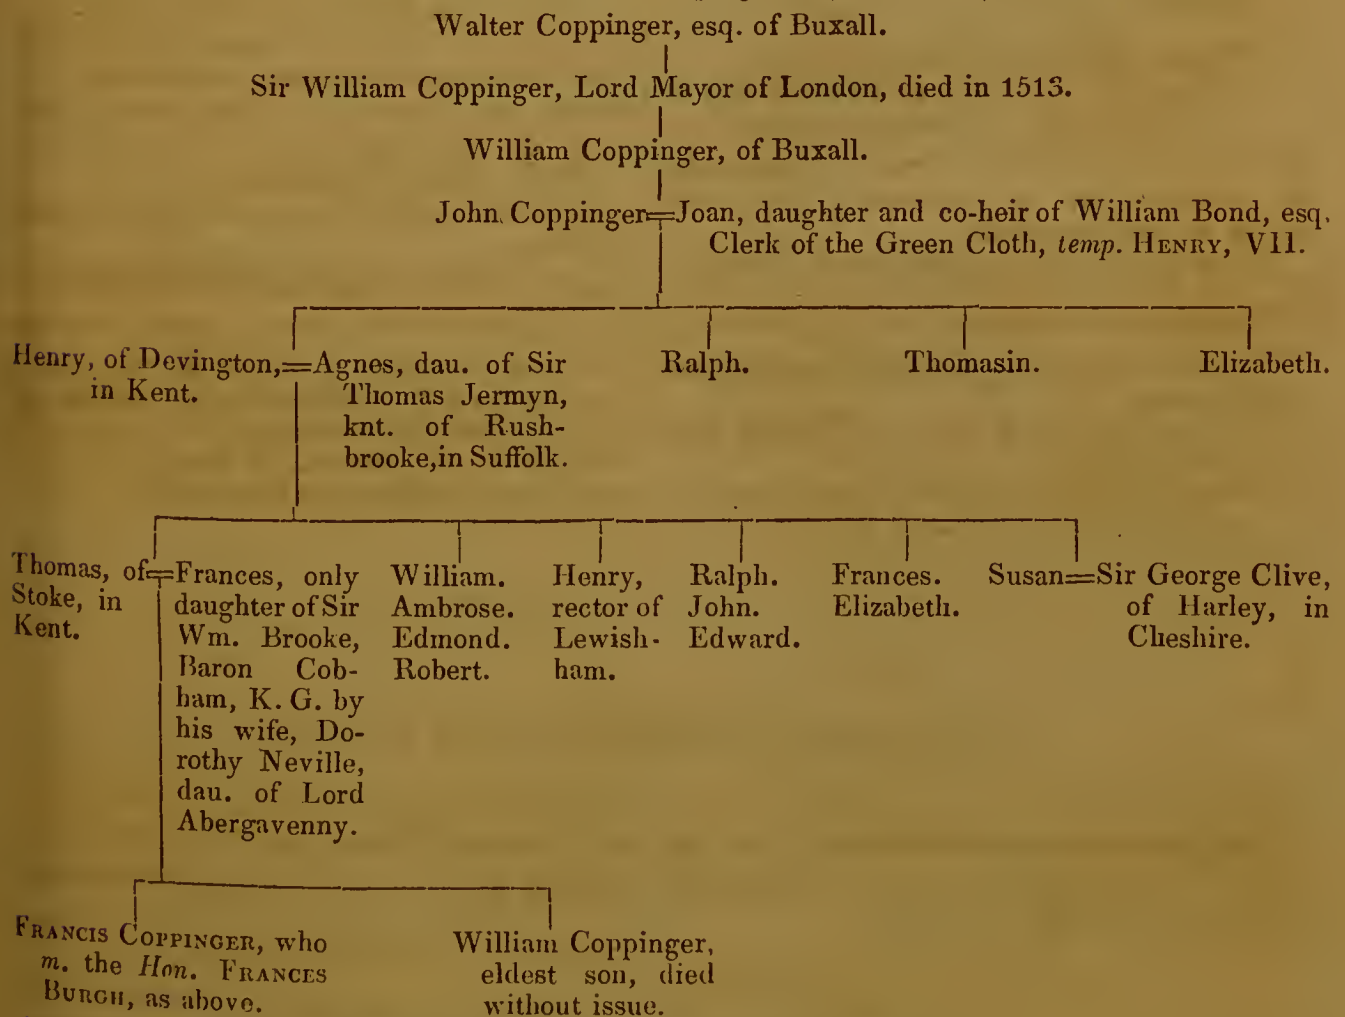 Walter Coppinger, esq. of Buxall.
Sir William Coppinger, Lord Mayor of London, died in 1513.
William Coppinger, of Buxall.
John Coppinger=Joan, daughter and co-heir of William Bond, esq.
Clerk of the Green Cloth, temp. HENRY, VII.
Henry, of Devington,
in Kent.
=Agnes, dau. of Sir
Thomas Jermyn,
knt. of Rush-
brooke, in Suffolk.
Ralph.
Thomasin.
Elizabeth.
Thomas, of
Stoke, in
Kent.
=Frances, only
daughter of Sir
Wm. Brooke,
Baron Cob-
ham, K. G. by
his wife, Do-
rothy Neville,
dau. of Lord
Abergavenny.
William.
Ambrose.
Edmond.
Robert.
Henry,
rector of
Lewish-
ham.
Ralph.
John.
Edward.
Frances.
Elizabeth.
Susan=Sir George Clive,
of Harley, in
Cheshire.
FRANCIS COPPINGER, who
m. the Hon. FRANCES
BURGH, as above.
William Coppinger,
eldest son, died
without issue.